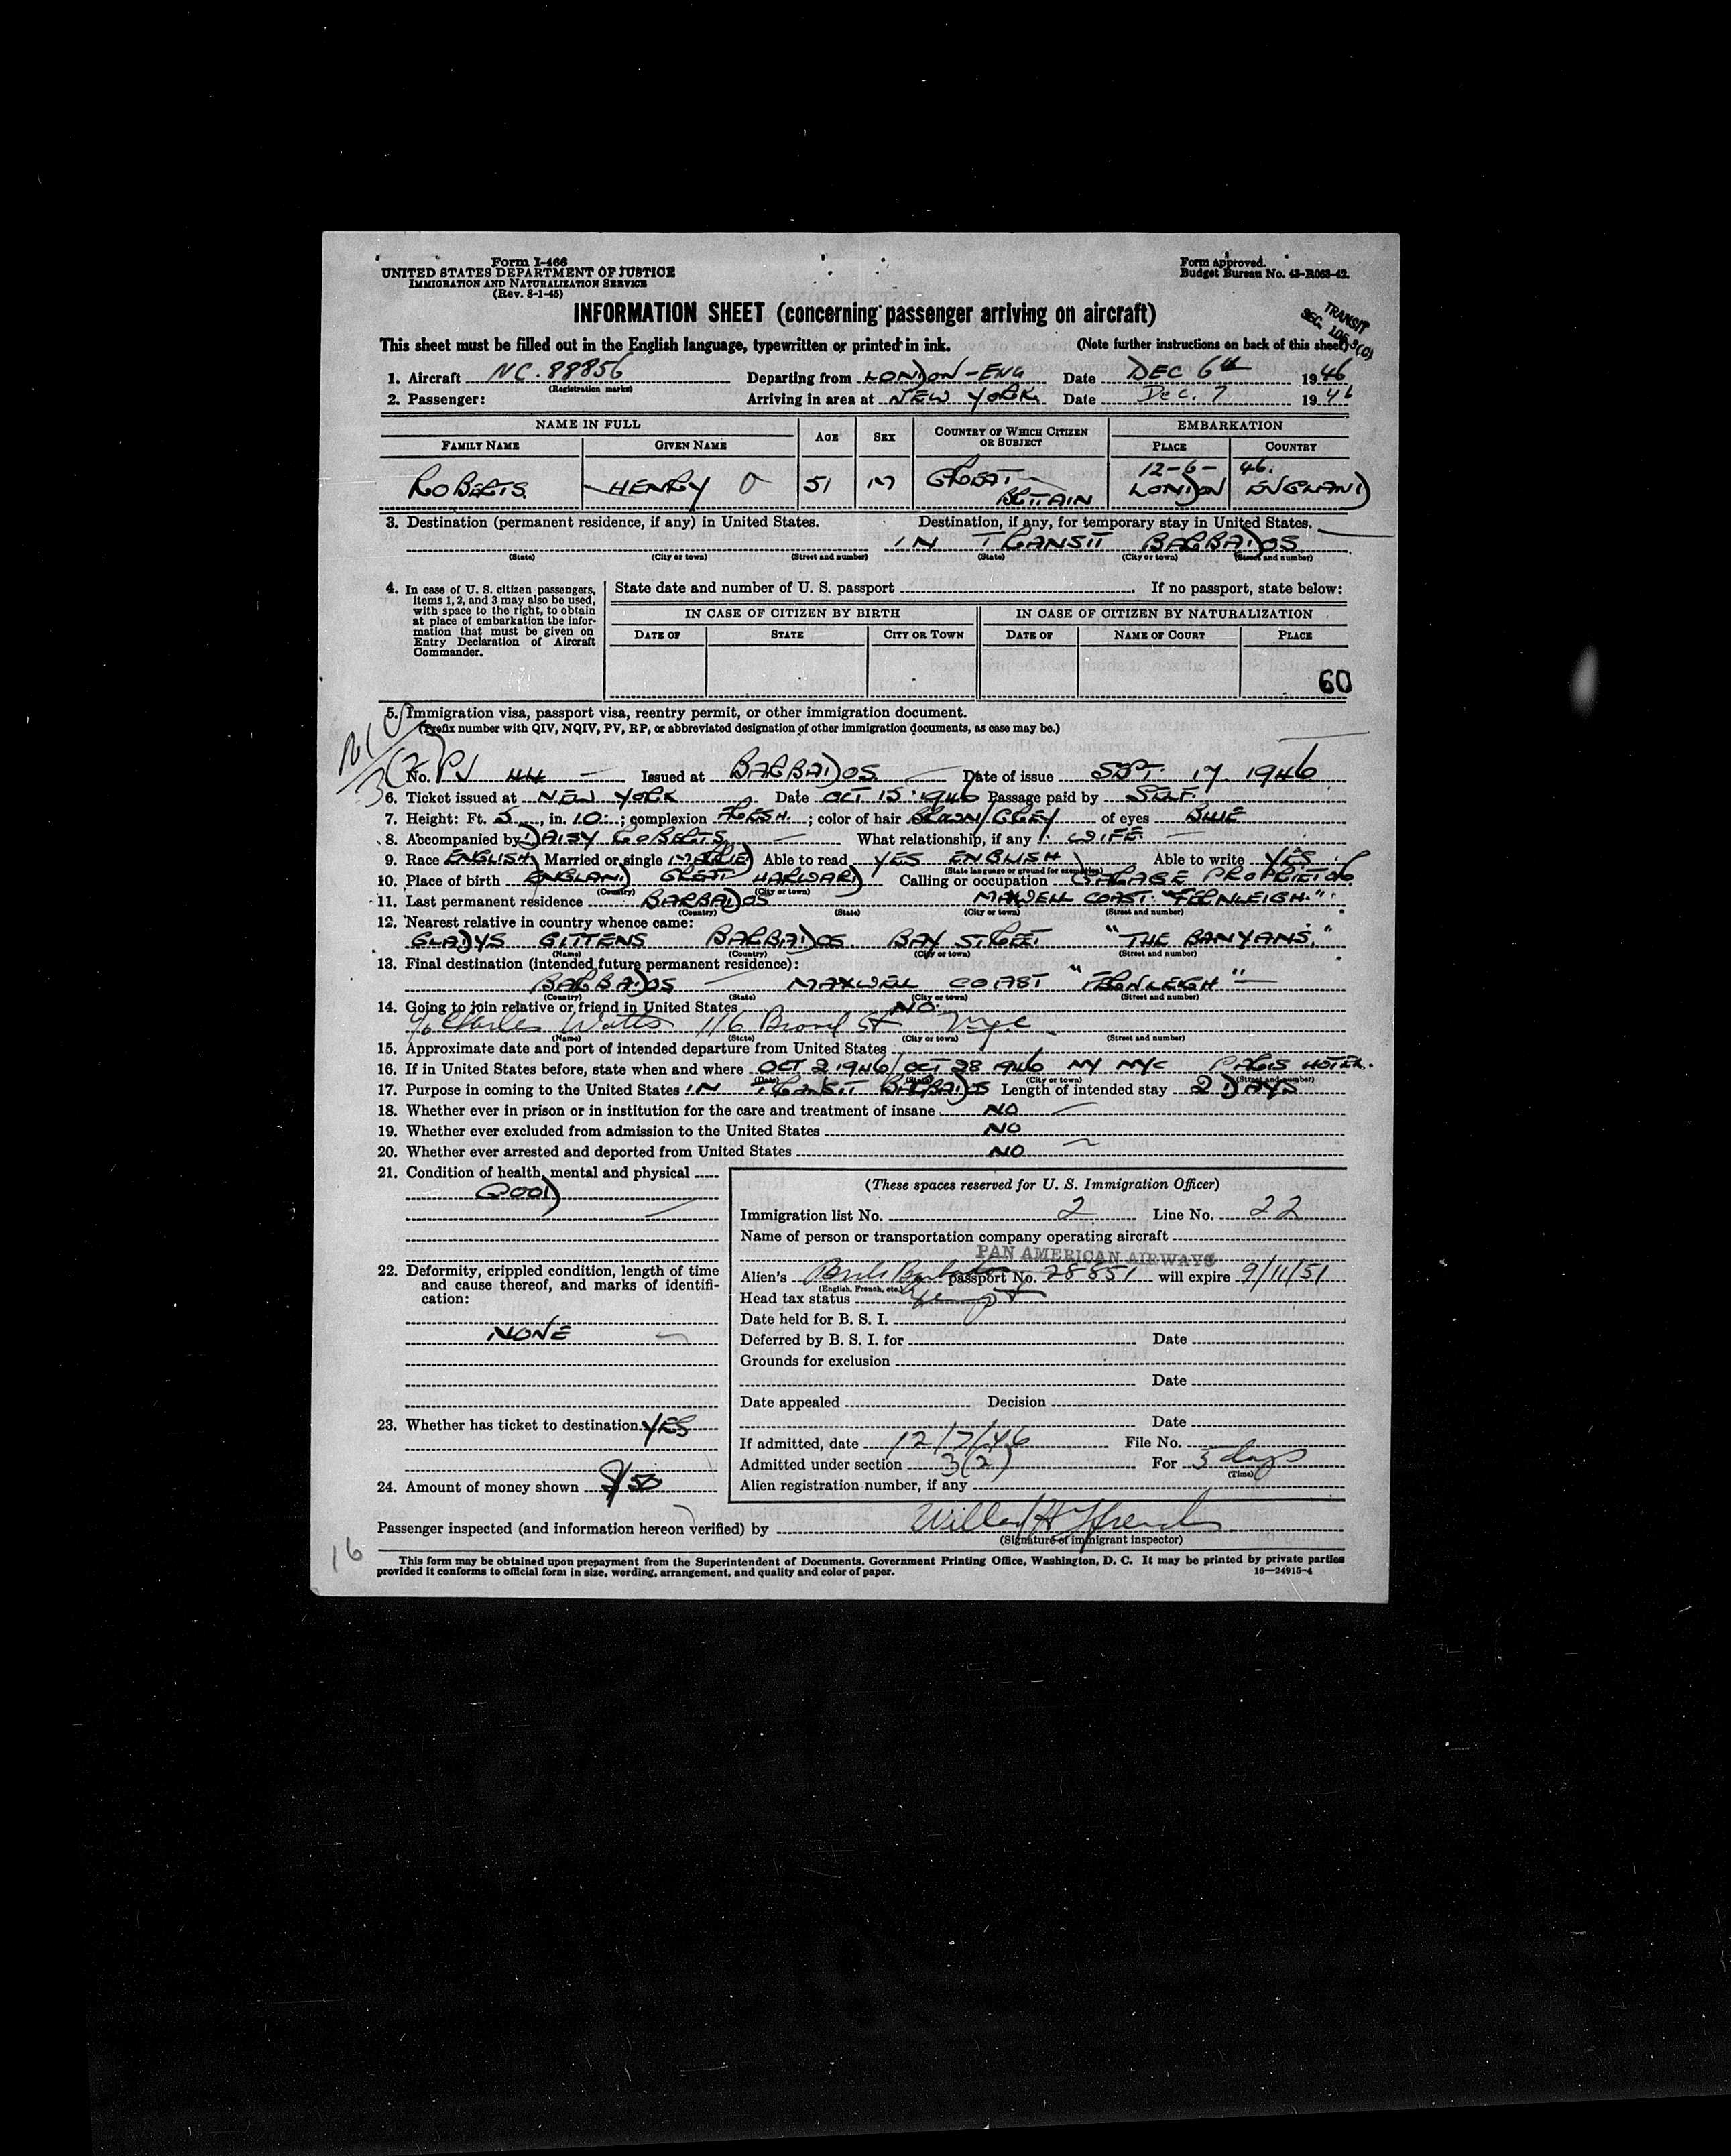 Form I-466
UNITED STATES DEPARTMENT OF JUSTICE
IMMIGRATION AND NATURALIZATION SERVICE
(Rev. 8-1-45)
Form approved.
Budget Bureau No. 43-R063-42.
INFORMATION SHEET (concerning passenger arriving on aircraft)
TRANSIT
SEC. 105-3(c)
This sheet must be filled out in the English language, typewritten or printed in ink. (Note further instructions on back of this sheet)
1. Aircraft NC. 88856 Departing from LONDON-ENG Date DEC 6th 1946
(Registration marks)
2. Passenger: Arriving in area at NEW YORK Date Dec. 7 1946
NAME IN FULL AGE SEX COUNTRY OF WHICH CITIZEN OR SUBJECT EMBARKATION
FAMILY NAME GIVEN NAME PLACE COUNTRY
12-6- 46.
ROBERTS HENRY O 51 M GREAT BRITAIN LONDON ENGLAND
3. Destination (permanent residence, if any) in United States. Destination, if any, for temporary stay in United States.
IN TRANSIT BARBADOS
(State) (City or town) (Street and number) (State) (City or town) (Street and number)
4. In case of U. S. citizen passengers, items 1, 2, and 3 may also be used, with space to the right, to obtain at place of embarkation the information that must be given on Entry Declaration of Aircraft Commander.
State date and number of U. S. passport If no passport, state below:
IN CASE OF CITIZEN BY BIRTH IN CASE OF CITIZEN BY NATURALIZATION
DATE OF STATE CITY OR TOWN DATE OF NAME OF COURT PLACE
60
5. Immigration visa, passport visa, reentry permit, or other immigration document.
(Prefix number with QIV, NQIV, PV, RP, or abbreviated designation of other immigration documents, as case may be.)
3(2)
No. PV 44 Issued at BARBADOS Date of issue SEPT. 17 1946
6. Ticket issued at NEW YORK Date OCT 15 1946 Passage paid by SELF.
7. Height: Ft. 5, in. 10; complexion FRESH.; color of hair BROWN/GREY of eyes BLUE
8. Accompanied by DAISY ROBERTS What relationship, if any WIFE
9. Race ENGLISH Married or single MARRIED Able to read YES ENGLISH Able to write YES
(State language or ground for exemption)
10. Place of birth ENGLAND GREAT HARWARD Calling or occupation GARAGE PROPRIETOR
(Country) (City or town)
11. Last permanent residence BARBADOS MAXWELL COAST. "FERNLEIGH."
(Country) (State) (City or town) (Street and number)
12. Nearest relative in country whence came:
GLADYS GITTENS BARBADOS BAY STREET "THE BANYANS."
(Name) (Country) (City or town) (Street and number)
13. Final destination (intended future permanent residence):
BARBADOS MAXWELL COAST "FERNLEIGH"
(Country) (State) (City or town) (Street and number)
14. Going to join relative or friend in United States NO.
c/o Charles Watts 116 Broad St Nyc
(Name) (State) (City or town) (Street and number)
15. Approximate date and port of intended departure from United States
16. If in United States before, state when and where OCT 2 1946/OCT 28 1946 NY NYC PARIS HOTEL.
(Date) (State) (City or town) (Street and number)
17. Purpose in coming to the United States IN TRANSIT BARBADOS Length of intended stay 2 DAYS
18. Whether ever in prison or in institution for the care and treatment of insane NO
19. Whether ever excluded from admission to the United States NO
20. Whether ever arrested and deported from United States NO
21. Condition of health, mental and physical
GOOD
22. Deformity, crippled condition, length of time and cause thereof, and marks of identification:
NONE
23. Whether has ticket to destination YES
24. Amount of money shown $150
(These spaces reserved for U. S. Immigration Officer)
Immigration list No. 2 Line No. 22
Name of person or transportation company operating aircraft
PAN AMERICAN AIRWAYS
Alien's passport No. 28851 will expire 9/11/51
(English, French, etc.)
Head tax status Exempt
Date held for B. S. I.
Deferred by B. S. I. for Date
Grounds for exclusion
Date
Date appealed Decision
Date
If admitted, date 12/7/46 File No.
Admitted under section 3(2) For 5 days
(Time)
Alien registration number, if any
Passenger inspected (and information hereon verified) by
(Signature of immigrant inspector)
16
This form may be obtained upon prepayment from the Superintendent of Documents, Government Printing Office, Washington, D. C. It may be printed by private parties
provided it conforms to official form in size, wording, arrangement, and quality and color of paper. 16—24915-4